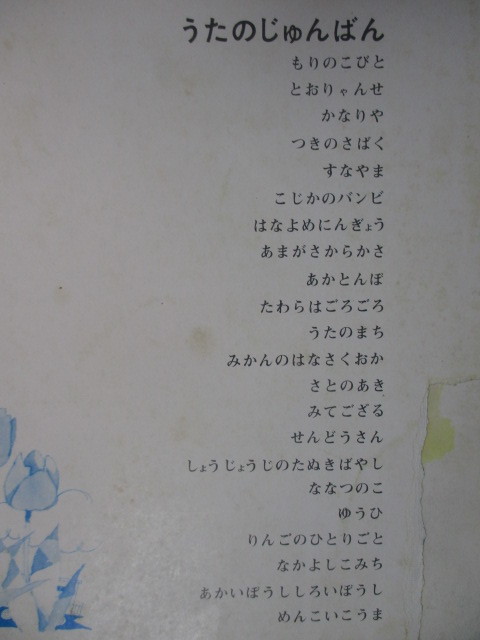 うたのじゅんばん
もりのこびと
とおりゃんせ
かなりや
つきのさばく
すなやま
こじかのバンビ
はなよめにんぎょう
あまがさからかさ
あかとんぼ
たわらはごろごろ
うたのまち
みかんのはなさくおか
さとのあき
みてござる
せんどうさん
しょうじょうじのたぬきばやし
ななつのこ
ゆうひ
りんごのひとりごと
なかよしこみち
あかいぼうししろいぼうし
めんこいこうま